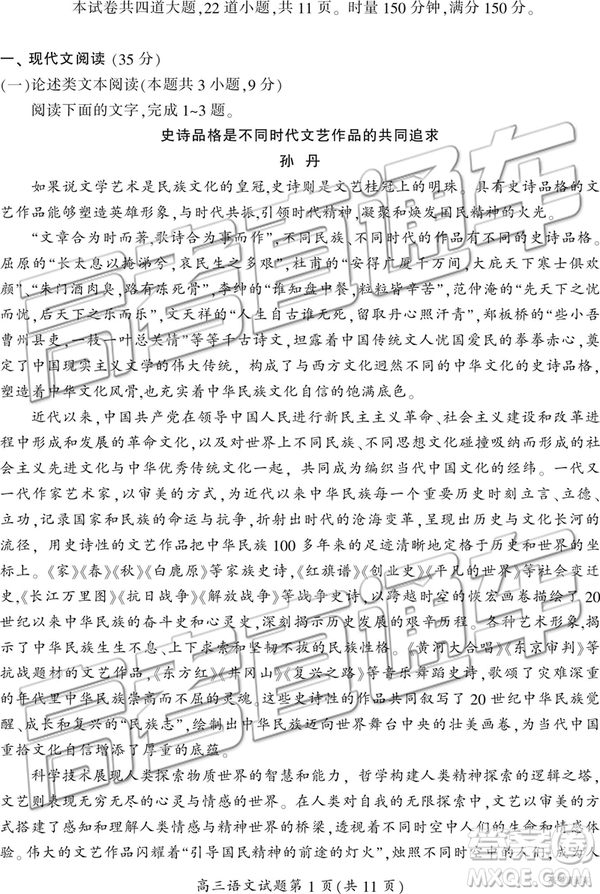 本试卷共四道大题,22道小题,共11页。时量150分钟,满分150分。
一、现代文阅读(35分)
(一)论述类文本阅读(本题共3小题,9分)
阅读下面的文字,完成1~3题。
史诗品格是不同时代文艺作品的共同追求
孙 丹
如果说文学艺术是民族文化的皇冠,史诗则是文艺桂冠上的明珠。具有史诗品格的文
艺作品能够塑造英雄形象,与时代共振,引领时代精神,凝聚和焕发国民精神的火光。
“文章合为时而著,歌诗合为事而作”,不同民族、不同时代的作品有不同的史诗品格。
屈原的“长太息以掩涕兮,哀民生之多艰”,杜甫的“安得广厦千万间,大庇天下寒士俱欢
颜”,“朱门酒肉臭,路有冻死骨”,李绅的“谁知盘中餐,粒粒皆辛苦”,范仲淹的“先天下之忧
而忧,后天下之乐而乐”,文天祥的“人生自古谁无死,留取丹心照汗青”,郑板桥的“些小吾
曹州县吏,一枝一叶总关情”等等千古诗文,坦露着中国文人忧国爱民的拳拳赤心,奠
定了中国现实主义文学的伟大传统,构成了与西方文化迥然不同的中华文化的史诗品格,
塑造着中华文化风骨,也充实着中华民族文化自信的饱满底色。
近代以来,中国共产党在领导中国人民进行新民主主义革命、社会主义建设和改革进
程中形成和发展的革命文化,以及对世界上不同民族、不同文化碰撞吸纳而形成和发展的社
会主义先进文化与中华优秀传统文化一起,共同成为编织当代中国文化的经纬。一代又
一代作家艺术家,以审美的方式,为近代以来中华民族的一个个重要历史时刻立言、立德、
立功,记录国家和民族的命运与抗争,折射出时代的沧海变革,呈现出历史与文化长河的
流径,用史诗性的文艺作品把中华民族100多年来的足迹清晰地定格于历史和世界的坐
标上。《家》《春》《秋》《白鹿原》等家族史诗,《红旗谱》《创业史》《平凡的世界》等社会变迁史
诗,《长江万里图》《抗日战争》《解放战争》等战争史诗,以跨越时空的恢宏画卷描绘了20
世纪以来中华民族的奋斗史和心灵史,深刻揭示了历史发展的逻辑。各种艺术形象,揭
示了中华民族生生不息、上下求索和坚韧不拔的民族性格。《黄河大合唱》《东京审判》等
抗战题材的文艺作品,《东方红》《井冈山》《复兴之路》等音乐舞蹈史诗,歌颂了灾难深重
的年代里中华民族崇高而不屈的灵魂。这些史诗性的作品共同叙写了20世纪中华民族觉
醒、成长和复兴的“民族志”,绘制出中华民族迈向世界舞台中央的壮美画卷,为当代中国
重拾文化自信增添了厚重的底蕴。
科学技术展现人类探索物质世界的智慧和能力,哲学构建人类精神探索的逻辑之塔,
文艺则表现无穷无尽的心灵与情感的世界。在人类对自我的无限探索中,文艺以审美的方
式搭建了感知和理解人类情感与精神世界的桥梁,透视着不同时空中人们的生命体
验。伟大的文艺作品闪耀着“引导国民精神的前途的灯火”,烛照不同时空中人
高三语文试题第1页(共11页)
高考直通车